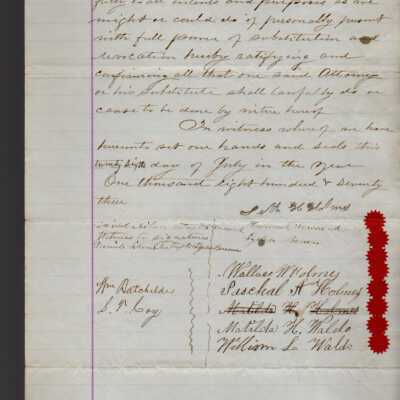 fully to all intents and purposes as we
might or could do if personally present
with full power of substitution and
revocation hereby ratifying and
confirming all that our said Attorney
or his substitute shall lawfully do or
cause to be done by virtue hereof
In witness whereof we have
hereunto set our hands and seals this
day of July in the year
One thousand eight hundred & seventy
three
Seth H Holmes
Witness to signatures
Wallace W Holmes
Wm Batchelder
Paschal A Holmes
S. F. Coy
Matilda H. Holmes
Matilda H. Waldo
William L Waldo